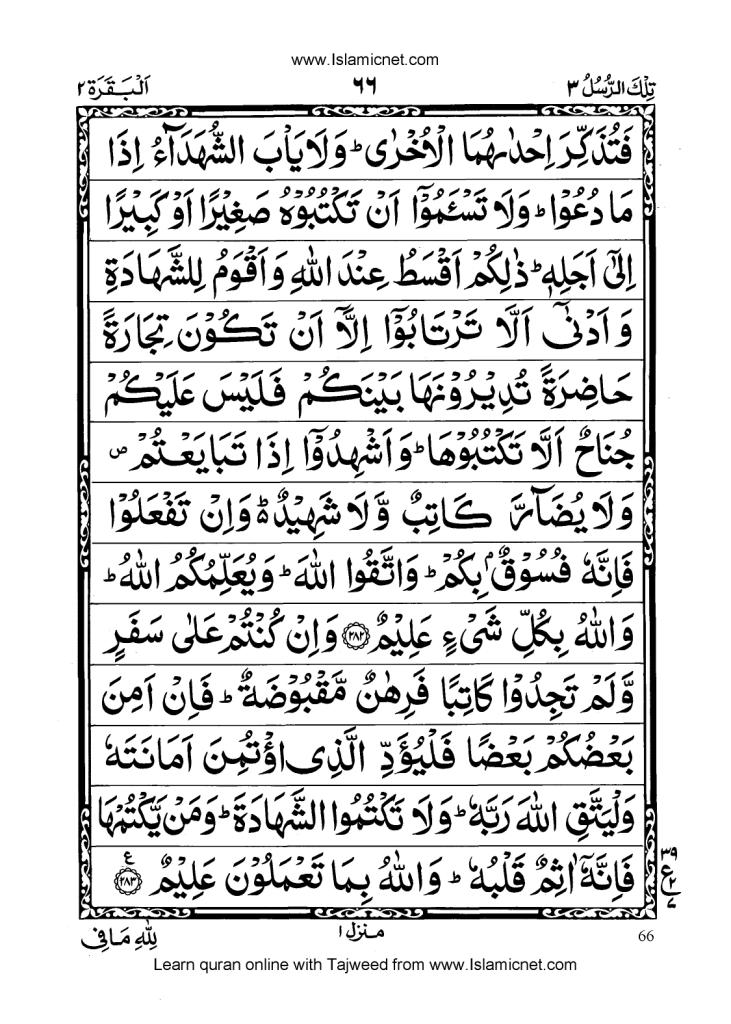 www.Islamicnet.com
تِلْكَ الرُّسُلُ ٣ ٦٦ اَلْبَقَرَة ٢
فَتُذَكِّرَ اِحْدٰىهُمَا الْاُخْرٰى ؕ وَلَا يَاْبَ الشُّهَدَآءُ اِذَا
مَا دُعُوْا ؕ وَلَا تَسْـَٔمُوْۤا اَنْ تَكْتُبُوْهُ صَغِيْرًا اَوْ كَبِيْرًا
اِلٰۤى اَجَلِهٖ ؕ ذٰلِكُمْ اَقْسَطُ عِنْدَ اللّٰهِ وَاَقْوَمُ لِلشَّهَادَةِ
وَاَدْنٰۤى اَلَّا تَرْتَابُوْۤا اِلَّاۤ اَنْ تَكُوْنَ تِجَارَةً
حَاضِرَةً تُدِيْرُوْنَهَا بَيْنَكُمْ فَلَيْسَ عَلَيْكُمْ
جُنَاحٌ اَلَّا تَكْتُبُوْهَا ؕ وَاَشْهِدُوْۤا اِذَا تَبَايَعْتُمْ ص
وَلَا يُضَآرَّ كَاتِبٌ وَّلَا شَهِيْدٌ ؕ۬ وَاِنْ تَفْعَلُوْا
فَاِنَّهٗ فُسُوْقٌۢ بِكُمْ ؕ وَاتَّقُوا اللّٰهَ ؕ وَيُعَلِّمُكُمُ اللّٰهُ ؕ
وَاللّٰهُ بِكُلِّ شَيْءٍ عَلِيْمٌ ﴿۲۸۲﴾ وَاِنْ كُنْتُمْ عَلٰى سَفَرٍ
وَّلَمْ تَجِدُوْا كَاتِبًا فَرِهٰنٌ مَّقْبُوْضَةٌ ؕ فَاِنْ اَمِنَ
بَعْضُكُمْ بَعْضًا فَلْيُؤَدِّ الَّذِى اؤْتُمِنَ اَمَانَتَهٗ
وَلْيَتَّقِ اللّٰهَ رَبَّهٗ ؕ وَلَا تَكْتُمُوا الشَّهَادَةَ ؕ وَمَنْ يَّكْتُمْهَا
فَاِنَّهٗۤ اٰثِمٌ قَلْبُهٗ ؕ وَاللّٰهُ بِمَا تَعْمَلُوْنَ عَلِيْمٌ ﴿۲۸۳﴾ ع
٣٩
ع ٢
٧
لِلّٰهِ مَا فِي منزل ١ 66
Learn quran online with Tajweed from www.Islamicnet.com